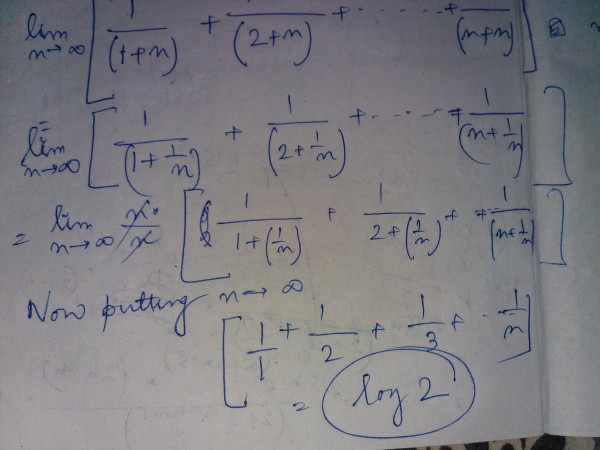 lim n→∞ [ 1/(1+n) + 1/(2+n) + ...... + 1/(n+n) ]
= lim n→∞ [ 1/(1+1/n) + 1/(2+1/n) + ...... + 1/(n+1/n) ]
= lim n→∞ n/n [ 1/(1+(1/n)) + 1/(2+(1/n)) + + 1/(n+1/n) ]
Now putting n→∞
[ 1/1 + 1/2 + 1/3 + .. 1/n ]
= log 2